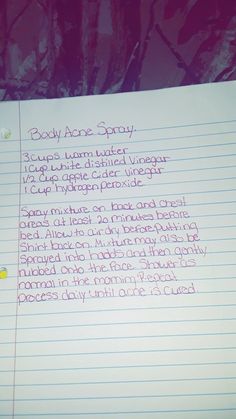 Body Acne Spray.
3 cups warm water
1 Cup white distilled Vinegar
1/2 Cup apple Cider Vinegar
1 Cup hydrogen peroxide
Spray mixture on back and chest
areas at least 20 minutes before
bed. Allow to air dry before putting
Shirt back on. Mixture may also be
Sprayed into hands and then gently
rubbed onto the Face. Shower as
normal in the morning. Repeat
process daily until acne is cured